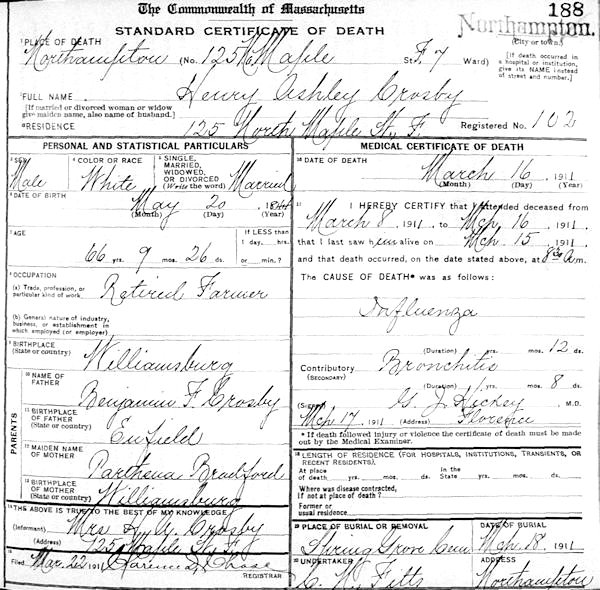 The Commonwealth of Massachusetts
188
Northampton.
STANDARD CERTIFICATE OF DEATH
(City or town)
1 PLACE OF DEATH
Northampton (No. 125 N. Maple St. F. 7 Ward)
[If death occurred in a hospital or institution, give its NAME instead of street and number.]
2 FULL NAME Henry Ashley Crosby
[If married or divorced woman or widow give maiden name, also name of husband.]
RESIDENCE 125 North Maple St. F. Registered No. 102
PERSONAL AND STATISTICAL PARTICULARS
3 SEX
Male
4 COLOR OR RACE
White
5 SINGLE, MARRIED, WIDOWED, OR DIVORCED (Write the word)
Married
6 DATE OF BIRTH
May 20
(Month) (Day) (Year)
7 AGE
66 yrs. 9 mos. 26 ds.
If LESS than 1 day, hrs. or min.?
8 OCCUPATION
(a) Trade, profession, or particular kind of work
Retired Farmer
(b) General nature of industry, business, or establishment in which employed (or employer)
9 BIRTHPLACE (State or country)
Williamsburg
PARENTS
10 NAME OF FATHER
Benjamin F. Crosby
11 BIRTHPLACE OF FATHER (State or country)
Enfield
12 MAIDEN NAME OF MOTHER
Parthena Bradford
13 BIRTHPLACE OF MOTHER (State or country)
Williamsburg
14 THE ABOVE IS TRUE TO THE BEST OF MY KNOWLEDGE
(Informant) Mrs H. A. Crosby
(Address) 125 Maple St. F.
15
Filed Mar. 22 1911 Clarence D. Chase
REGISTRAR
MEDICAL CERTIFICATE OF DEATH
16 DATE OF DEATH
March 16, 1911
(Month) (Day) (Year)
17 I HEREBY CERTIFY that I attended deceased from
March 8, 1911, to Mch 16, 1911
that I last saw him alive on Mch 15, 1911
and that death occurred, on the date stated above, at 8:30 a.m.
The CAUSE OF DEATH* was as follows:
Influenza
(Duration) yrs. mos. 12 ds.
Contributory (SECONDARY) Bronchitis
(Duration) yrs. mos. 8 ds.
(Signed) G. J. Hickey M.D.
Mch 17, 1911 (Address) Florence
* If death followed injury or violence the certificate of death must be made out by the Medical Examiner.
18 LENGTH OF RESIDENCE (FOR HOSPITALS, INSTITUTIONS, TRANSIENTS, OR RECENT RESIDENTS).
At place of death yrs. mos. ds. In the State yrs. mos. ds.
Where was disease contracted, if not at place of death?
Former or usual residence
19 PLACE OF BURIAL OR REMOVAL
Spring Grove Cem
DATE OF BURIAL
Mch 18, 1911
20 UNDERTAKER
C. N. Fitts
ADDRESS
Northampton